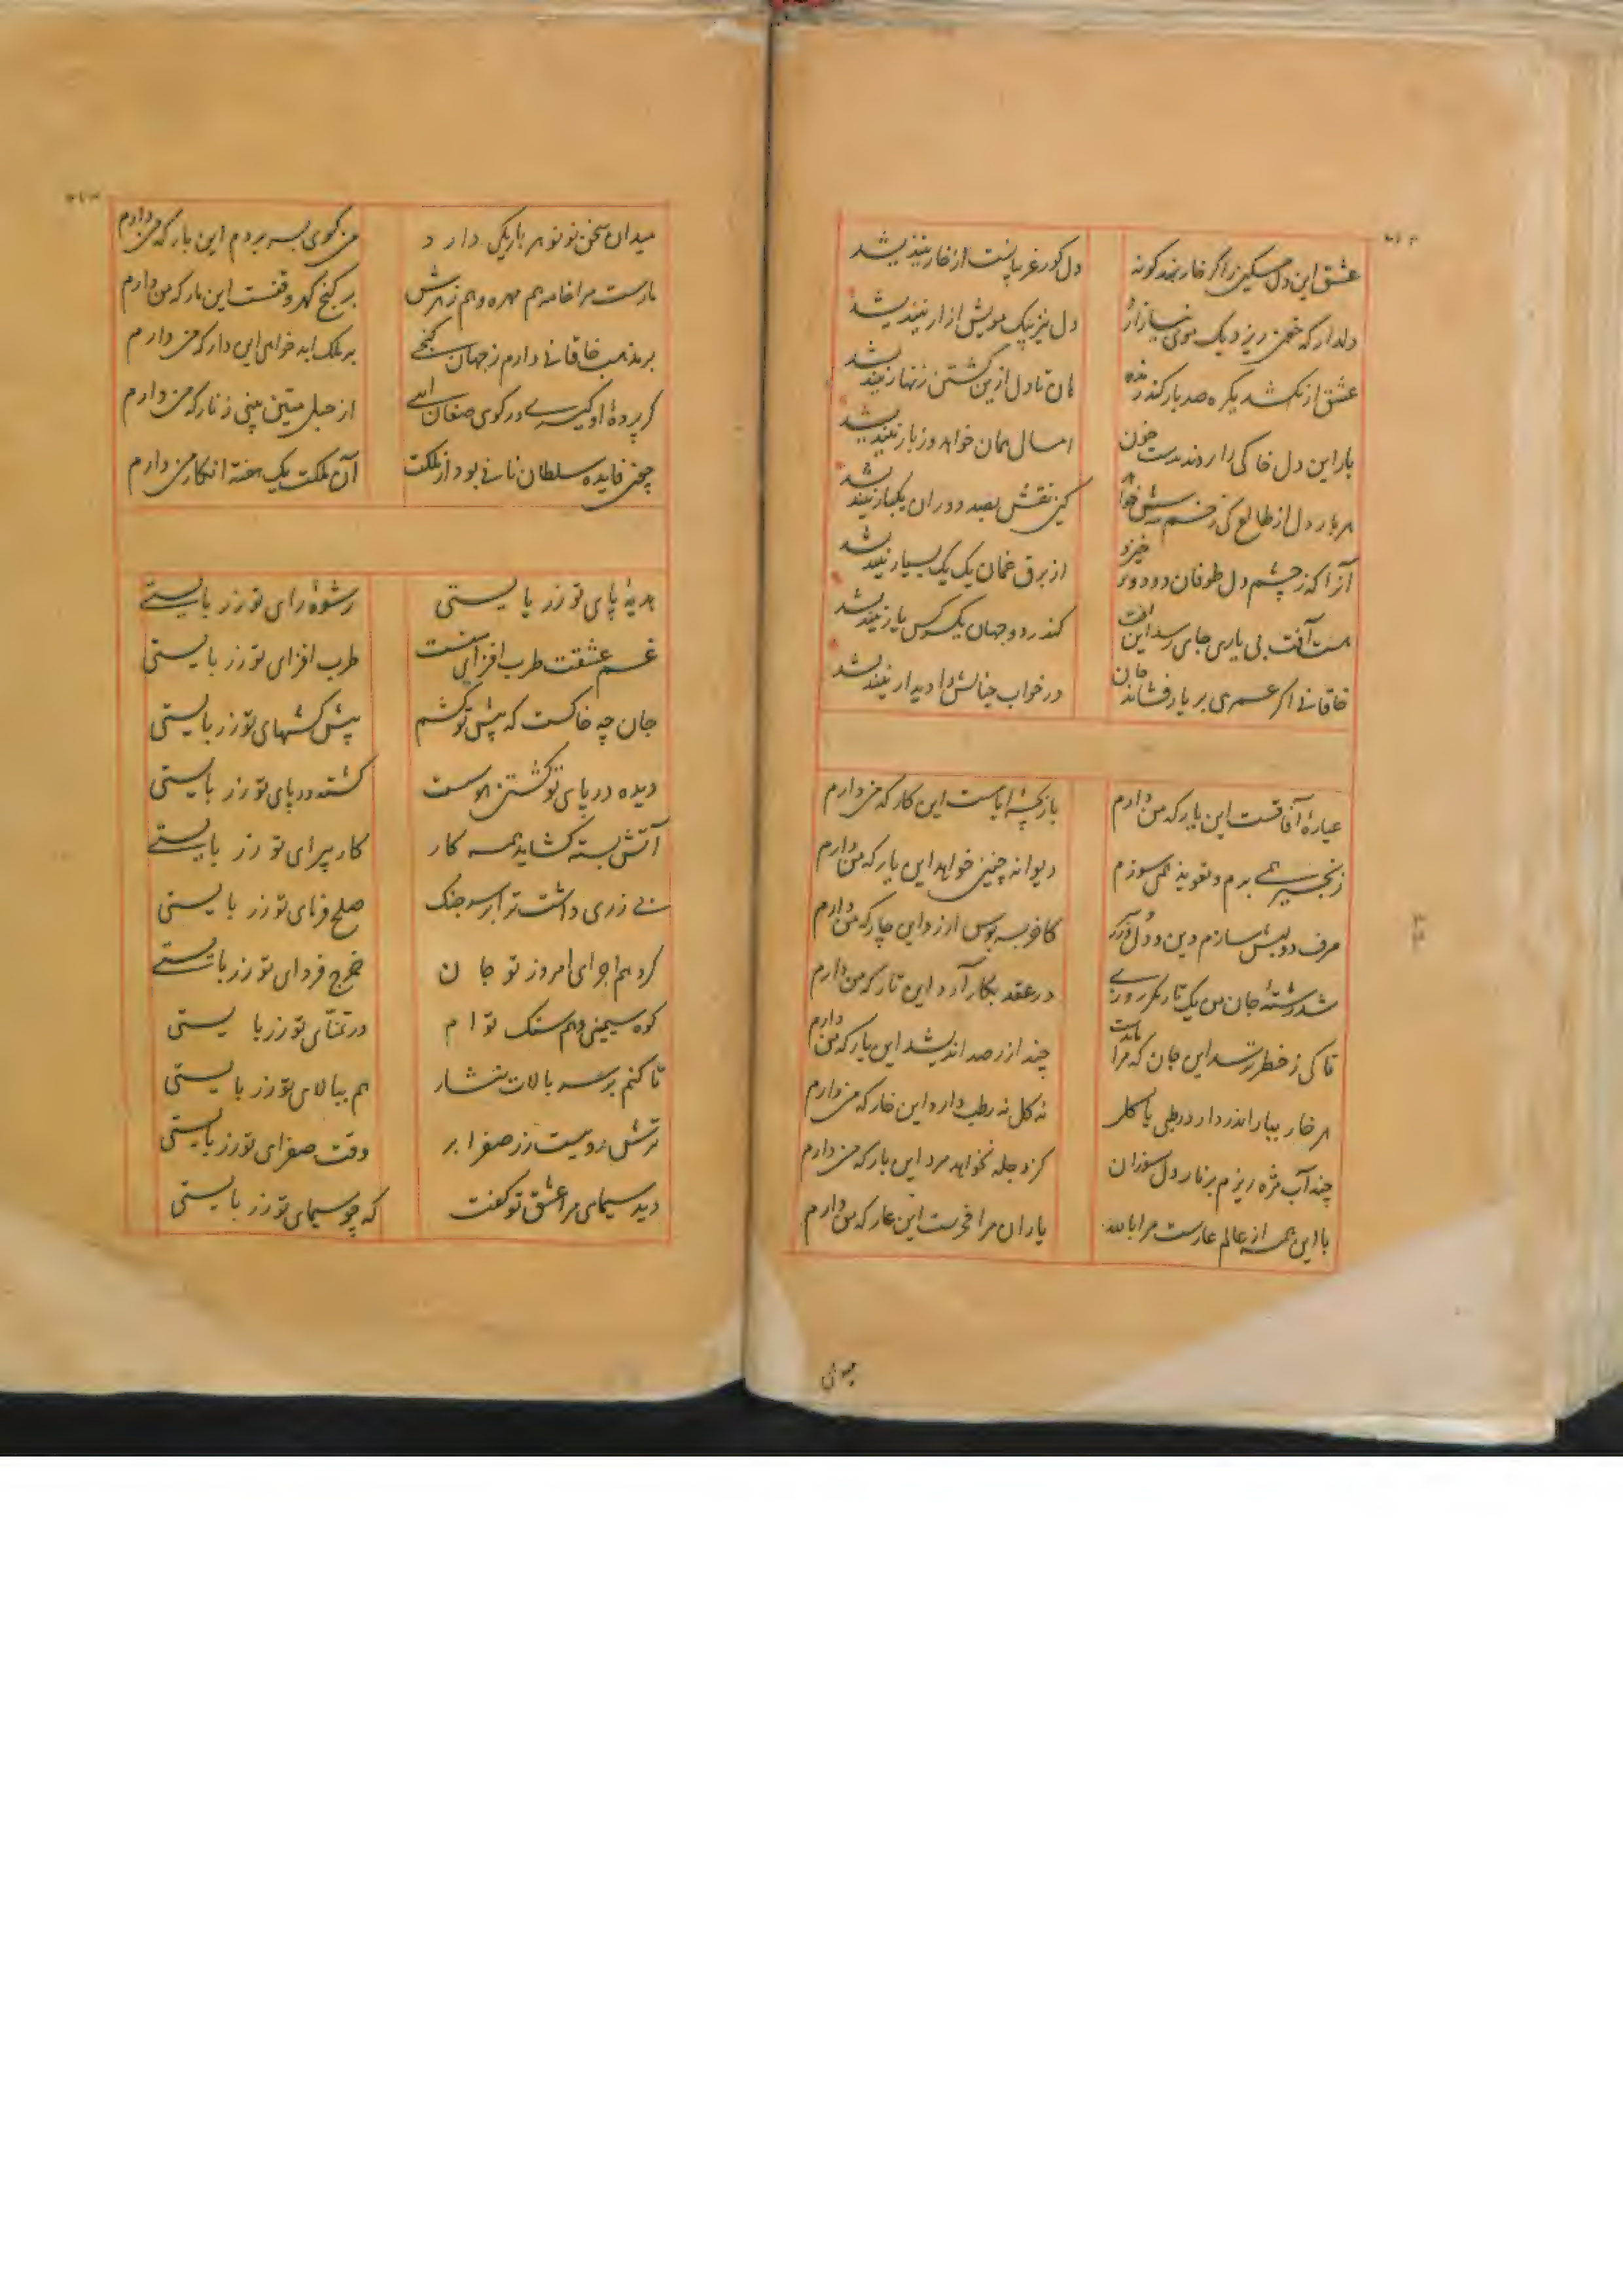 عشق این دل مسکین را گر خار نهد کو نه
دل کو رغریبانست از خار نیندیشد
دلدار که خون ریزد یک موی نیازارد
دل نیز بیک مویش ازار نیندیشد
عشق ار بکشد یکره صد بار کند زنده
هان تا دل ازین کشتن زنهار نیندیشد
پار این دل خاکی را بردند بدست خون
امسال همان خواهد وز پار نیندیشد
هر بار دل از طالع کی زخم
کین نقش بصد دوران یکبار نیندیشد
آنرا که ز چشم و دل طوفان دو دو بر خیزد
از برق غمان یک یک بسیار نیندیشد
هست آفت بی یاری جای رسد این آفت
کندر دو جهان یک کس یار نیندیشد
خاقانی اگر عمری بر یاد فشاند جان
در خواب خیالش را دیدار نیندیشد
عیارهٔ آفاقست این یار که من دارم
بازیچهٔ ایامست این کار که من دارم
زنجیر همی برم و تعویذ همی سوزم
دیوانه چنین خواهد این یار که من دارم
صرف دو لبش سازم دین و دل و زر
کافر بسه بوس ارزد این چار که من دارم
شد رشتهٔ جان من یک تار مگر روزی
در عقد بکار آرد این تار که من دارم
تا کی ز خطر ترسد این جان که مرا ماندست
چند از رصد اندیشد این بار که من دارم
هر خار ببار اندر دارد رطبی یا گل
نه گل نه رطب دارد این خار که من دارم
چند آب مژه ریزم بر نار دل سوزان
کز دجله نخواهد مرد این نار که من دارم
با این همه از عالم عارست مرا بالله
یاران مرا فخرست این عار که من دارم
میدان سخن نو نو هر بار یکی دارد
من گوی بسر بردم این بار که من دارم
مارست مرا خامه هم مهره و هم زهرش
بر گنج گهر وقفست این مار که من دارم
بر مذهب خاقانی دارم ز جهان گنجی
بر ملک ابد خواهم این دار که من دارم
گر پردهٔ او گیری در کوی مغان آیی
از حبل متین بینی زنار که من دارم
چه فایده سلطان نانی بود از ملکت
آن ملکت یک هفته انگار من دارم
هدیهٔ پای تو زر بایستی
رشوهٔ رای تو زر بایستی
غم عشقت طرب افزای منست
طرب افزای تو زر بایستی
جان چه خاکست که پیش تو کشم
پیش کشهای تو زر بایستی
دیده در پای تو کشتن هوست
کشته در پای تو زر بایستی
آتش بسته گشاید همه کار
کار پیرای تو زر بایستی
بی زری داشت ترا بر سر جنگ
صلح فرمای تو زر بایستی
کردم اجرای امروز تو جان
خرج فردای تو زر بایستی
کوه سیمینی و هم سنگ توام
در تمنّای تو زر بایستی
تا کنم بر سر بالات نثار
هم ببالای تو زر بایستی
ترش روییست زر صفرا بر
وقت صفرای تو زر بایستی
دید سیمای مرا عشق تو گفت
که چو سیمای تو زر بایستی